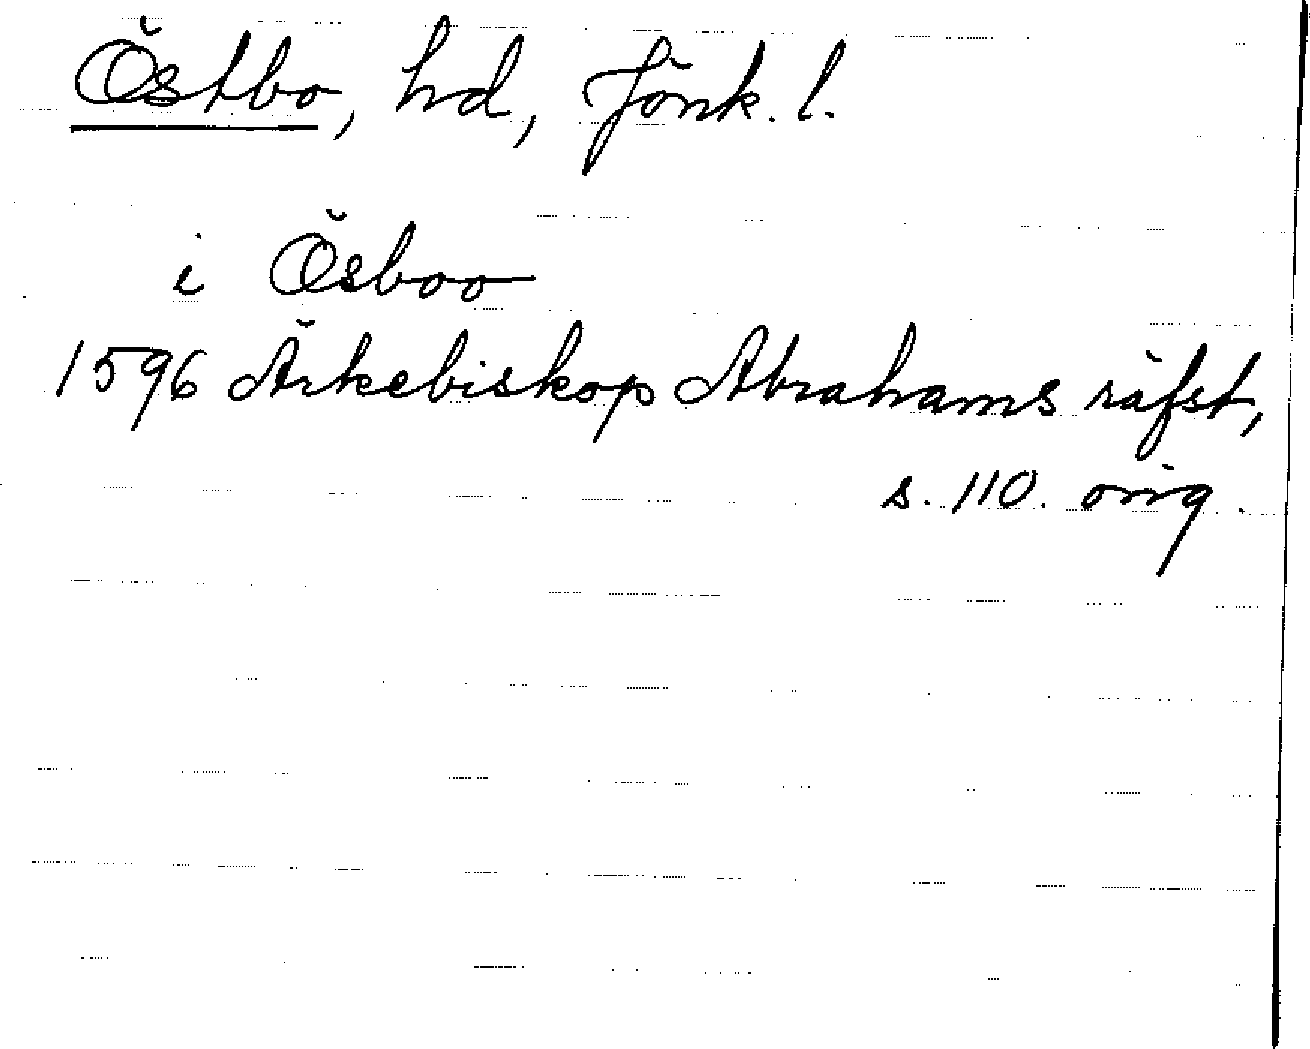 Östbo, hd, Jönk. l.
i Ösboo
1596 Ärkebiskop Abrahams räfst,
s. 110. orig.